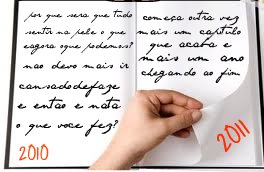 por que sera que tudo
sentir na pele o que
eagora oque podemos?
nao devo mais ir
cansadodefaze
e então e nata
o que voce fez?
2010
começa outra vez
mais um capitulo
que acaba e
mais um ano
chegando ao fim
2011